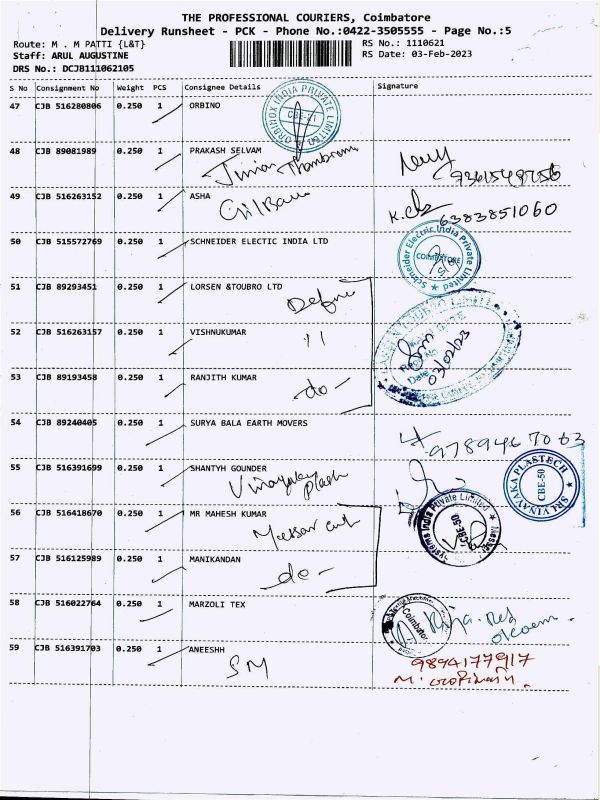 THE PROFESSIONAL COURIERS, Coimbatore
Delivery Runsheet - PCK - Phone No.:0422-3505555 - Page No.:5
Route: M . M PATTI {L&T}
RS No.: 1110621
Staff: ARUL AUGUSTINE
RS Date: 03-Feb-2023
DRS No.: DCJB111062105
S No Consignment No Weight PCS Consignee Details Signature
47 CJB 516280806 0.250 1 ORBINO
ORBINOX INDIA PRIVATE LIMITED
CBE-21
48 CJB 89081989 0.250 1 PRAKASH SELVAM
49 CJB 516263152 0.250 1 ASHA
6383851060
50 CJB 515572769 0.250 1 SCHNEIDER ELECTIC INDIA LTD
Schneider Electric India Private Limited
COIMBATORE
51 CJB 89293451 0.250 1 LORSEN &TOUBRO LTD
52 CJB 516263157 0.250 1 VISHNUKUMAR
11
03/02/23
53 CJB 89193458 0.250 1 RANJITH KUMAR
-do-
54 CJB 89240405 0.250 1 SURYA BALA EARTH MOVERS
9789467063
55 CJB 516391699 0.250 1 SHANTYH GOUNDER
Vinayaka
plash
SRI VINAYAKA PLASTECH
CBE-50
56 CJB 516418670 0.250 1 MR MAHESH KUMAR
Systems India Private Limited
CBE-50.
57 CJB 516125989 0.250 1 MANIKANDAN
do-
58 CJB 516022764 0.250 1 MARZOLI TEX
Coimbatore
59 CJB 516391703 0.250 1 ANEESHH
SM
9894177917